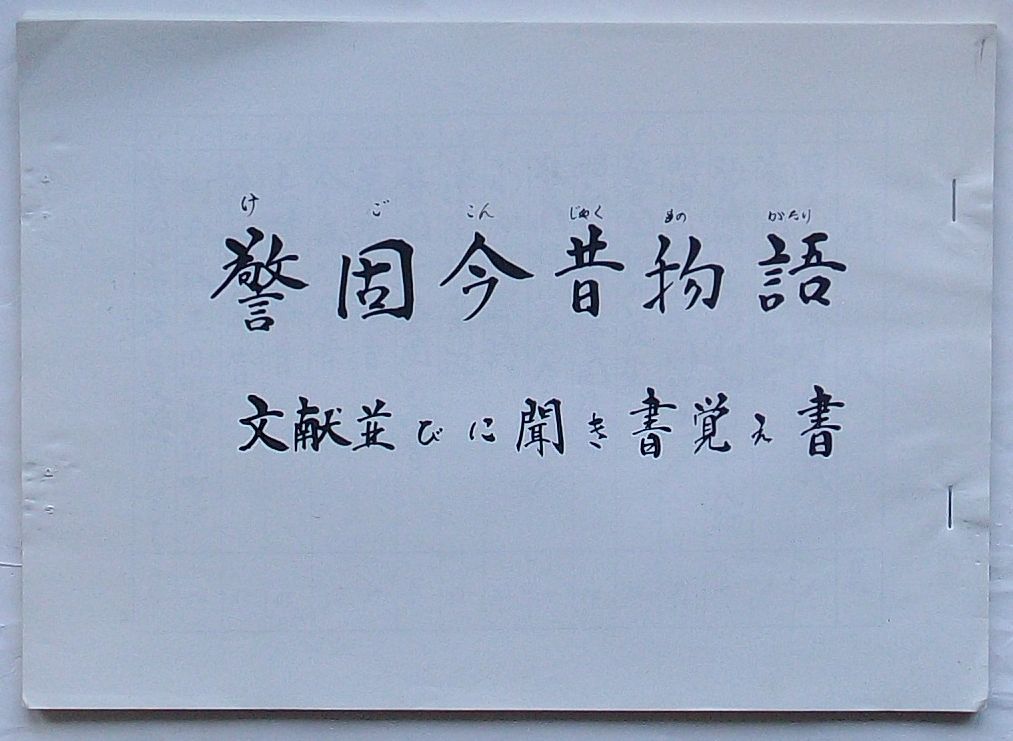 け ご こん じゃく もの がたり
警固今昔物語
文献並びに聞き書覚え書